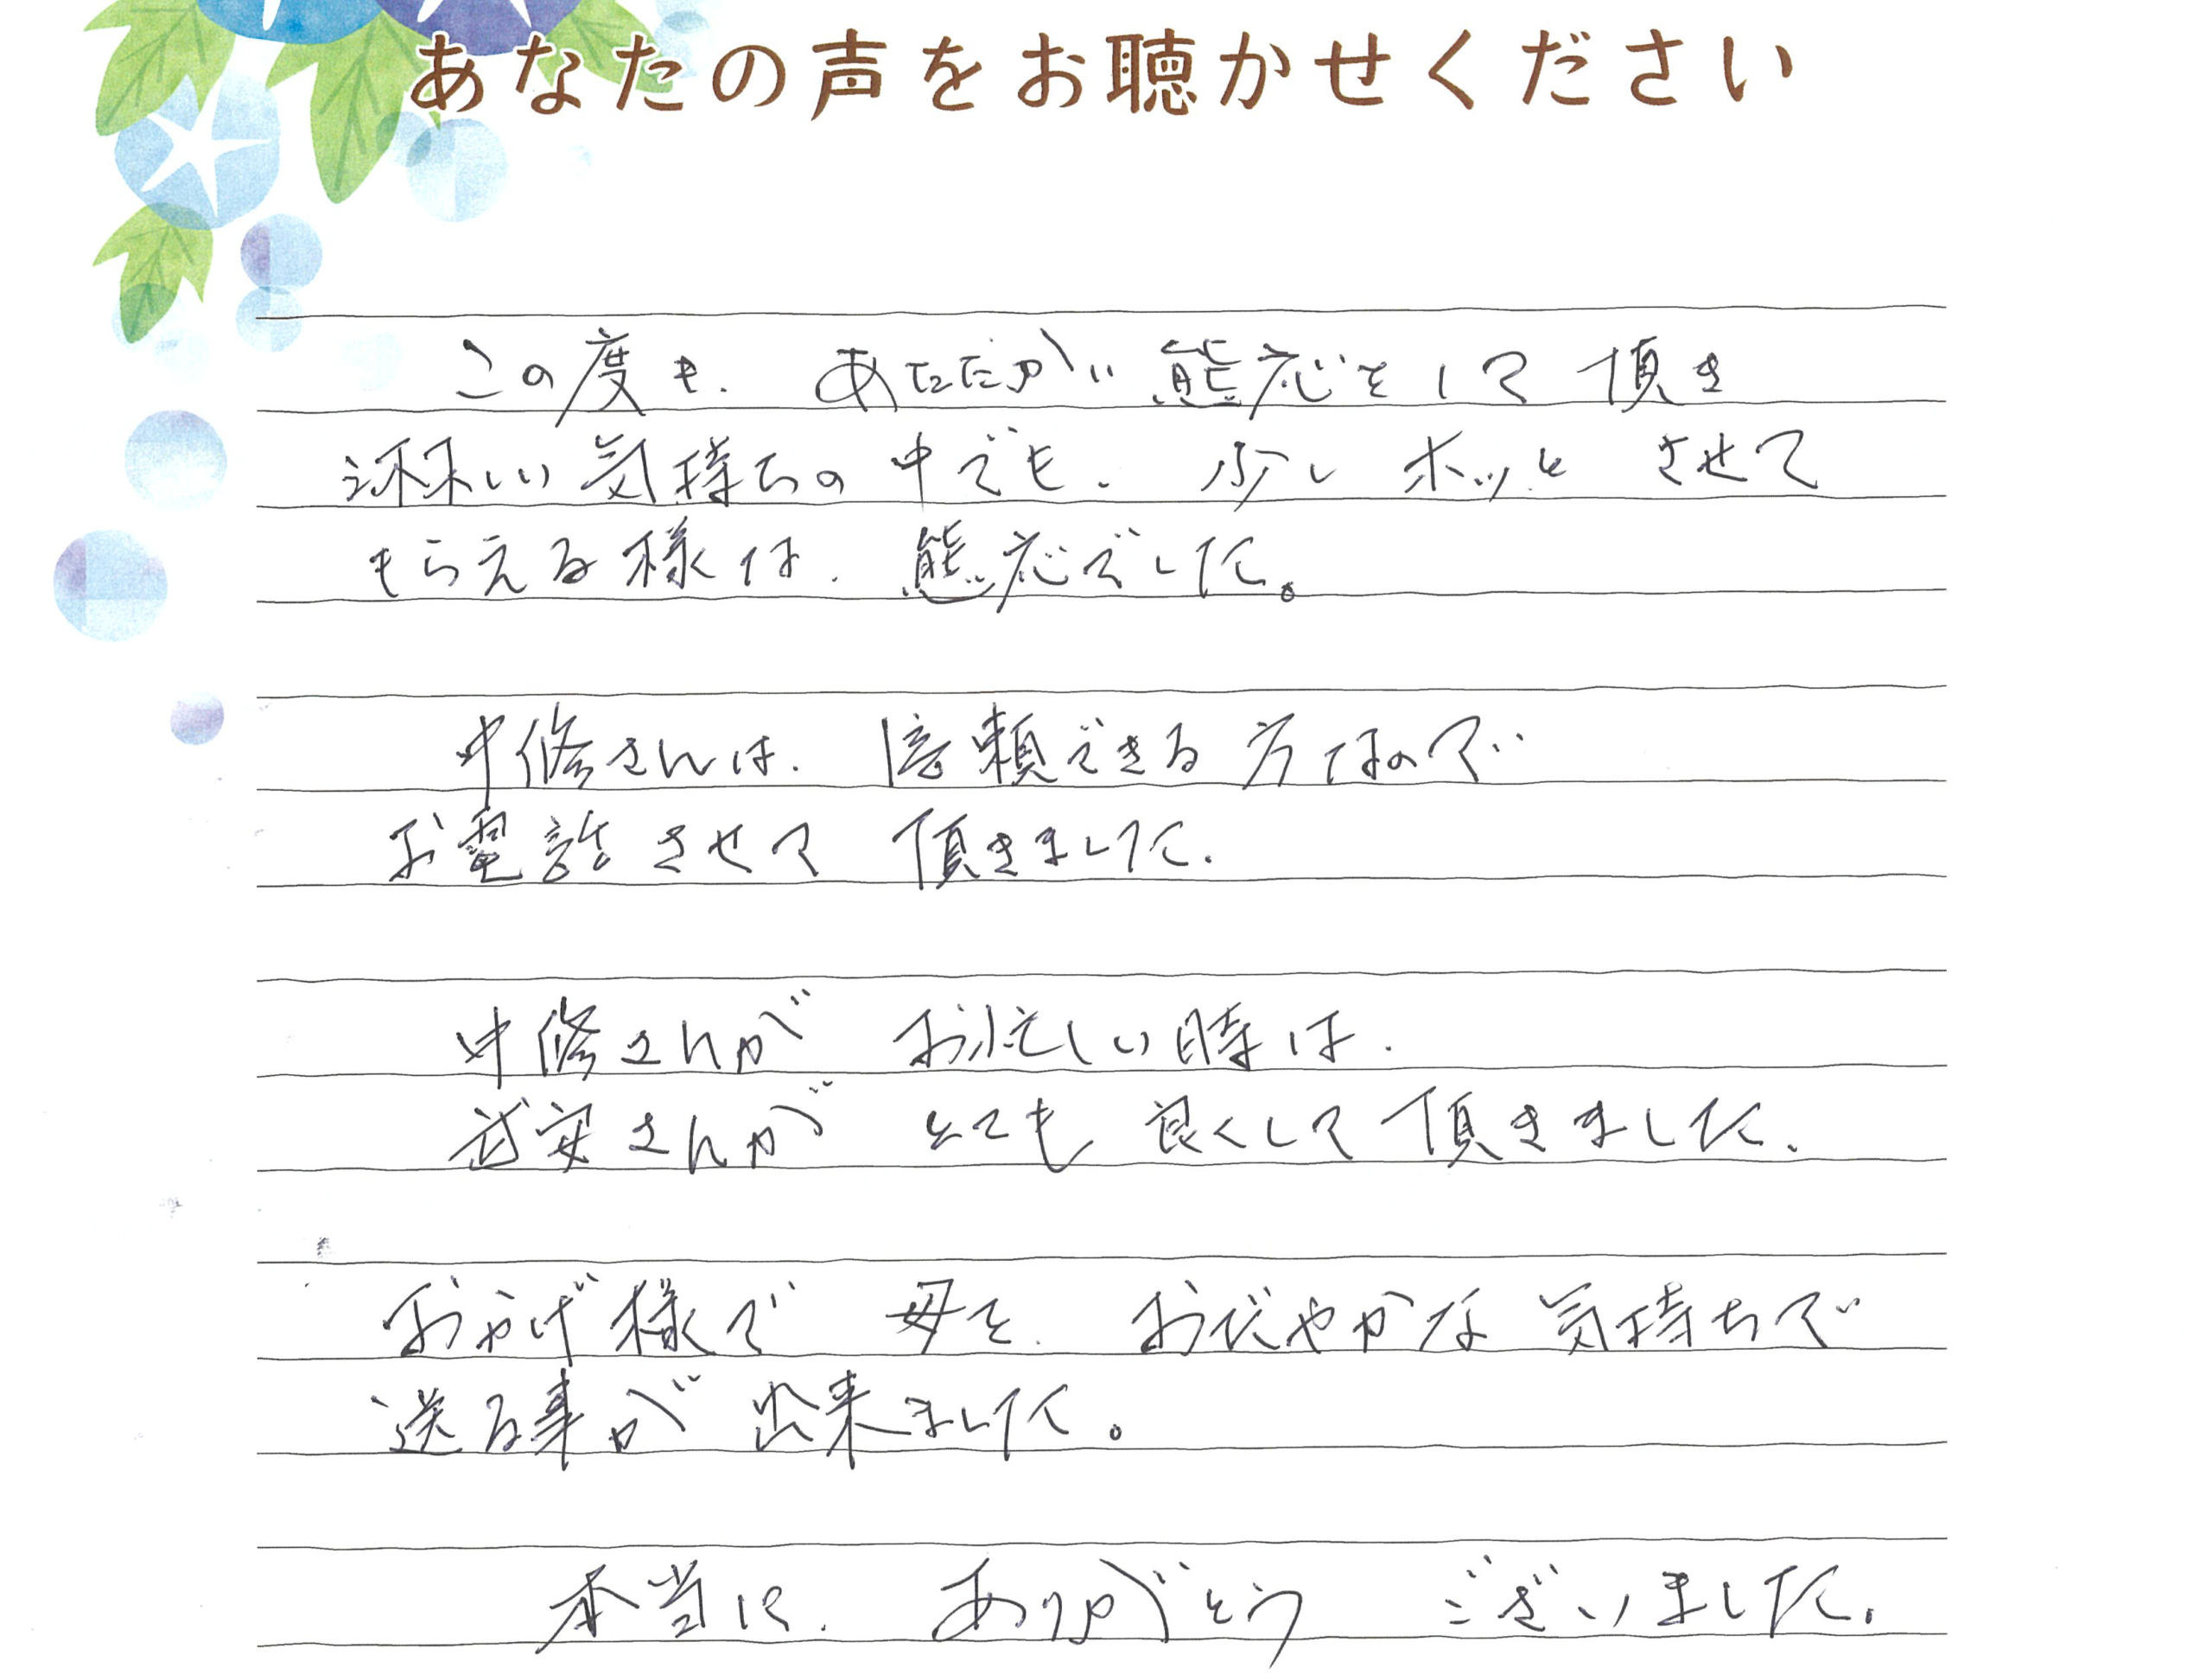 あなたの声をお聴かせください
この度も、あたたかい態応をして頂き
淋しい気持ちの中でも、少しホッとさせて
もらえる様な、態応でした。
中修さんは、信頼できる方なので
お電話させて頂きました。
中修さんがお忙しい時は、
武安さんがとても良くして頂きました。
おかげ様で母を、おだやかな気持ちで
送る事が出来ました。
本当に、ありがとうございました。